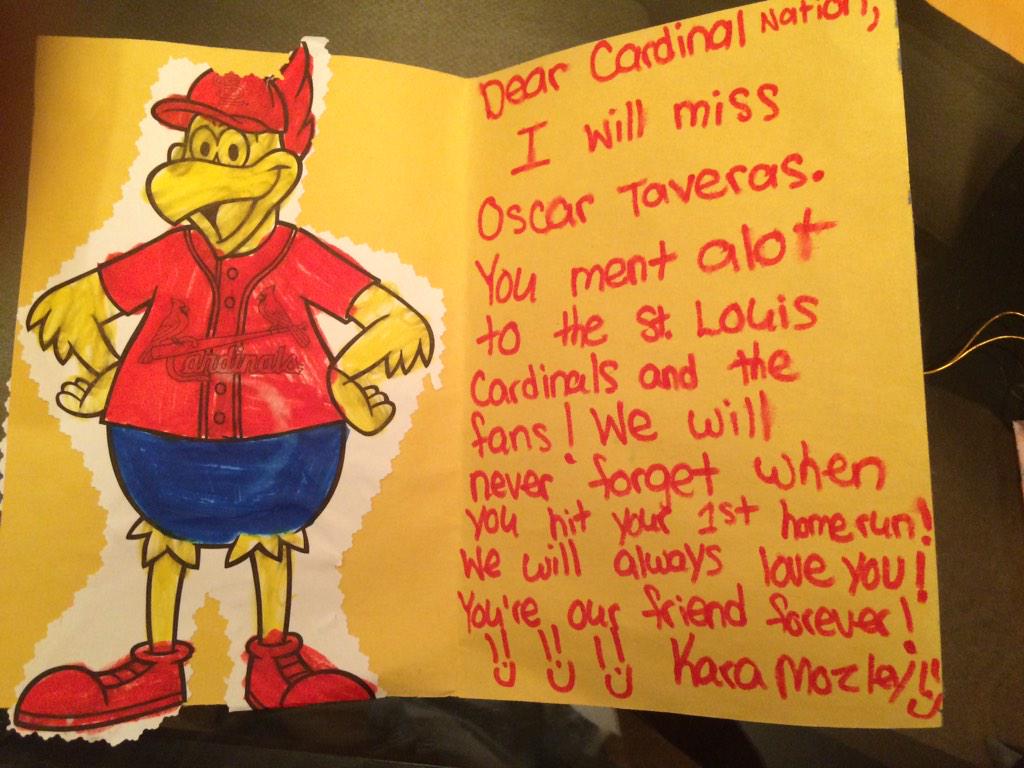 Cardinals
Dear Cardinal Nation,
I will miss
Oscar Taveras.
You ment alot
to the St. Louis
Cardinals and the
fans! We will
never forget when
you hit your 1st homerun!
We will always love you!
You're our friend forever!
Kara Mozley